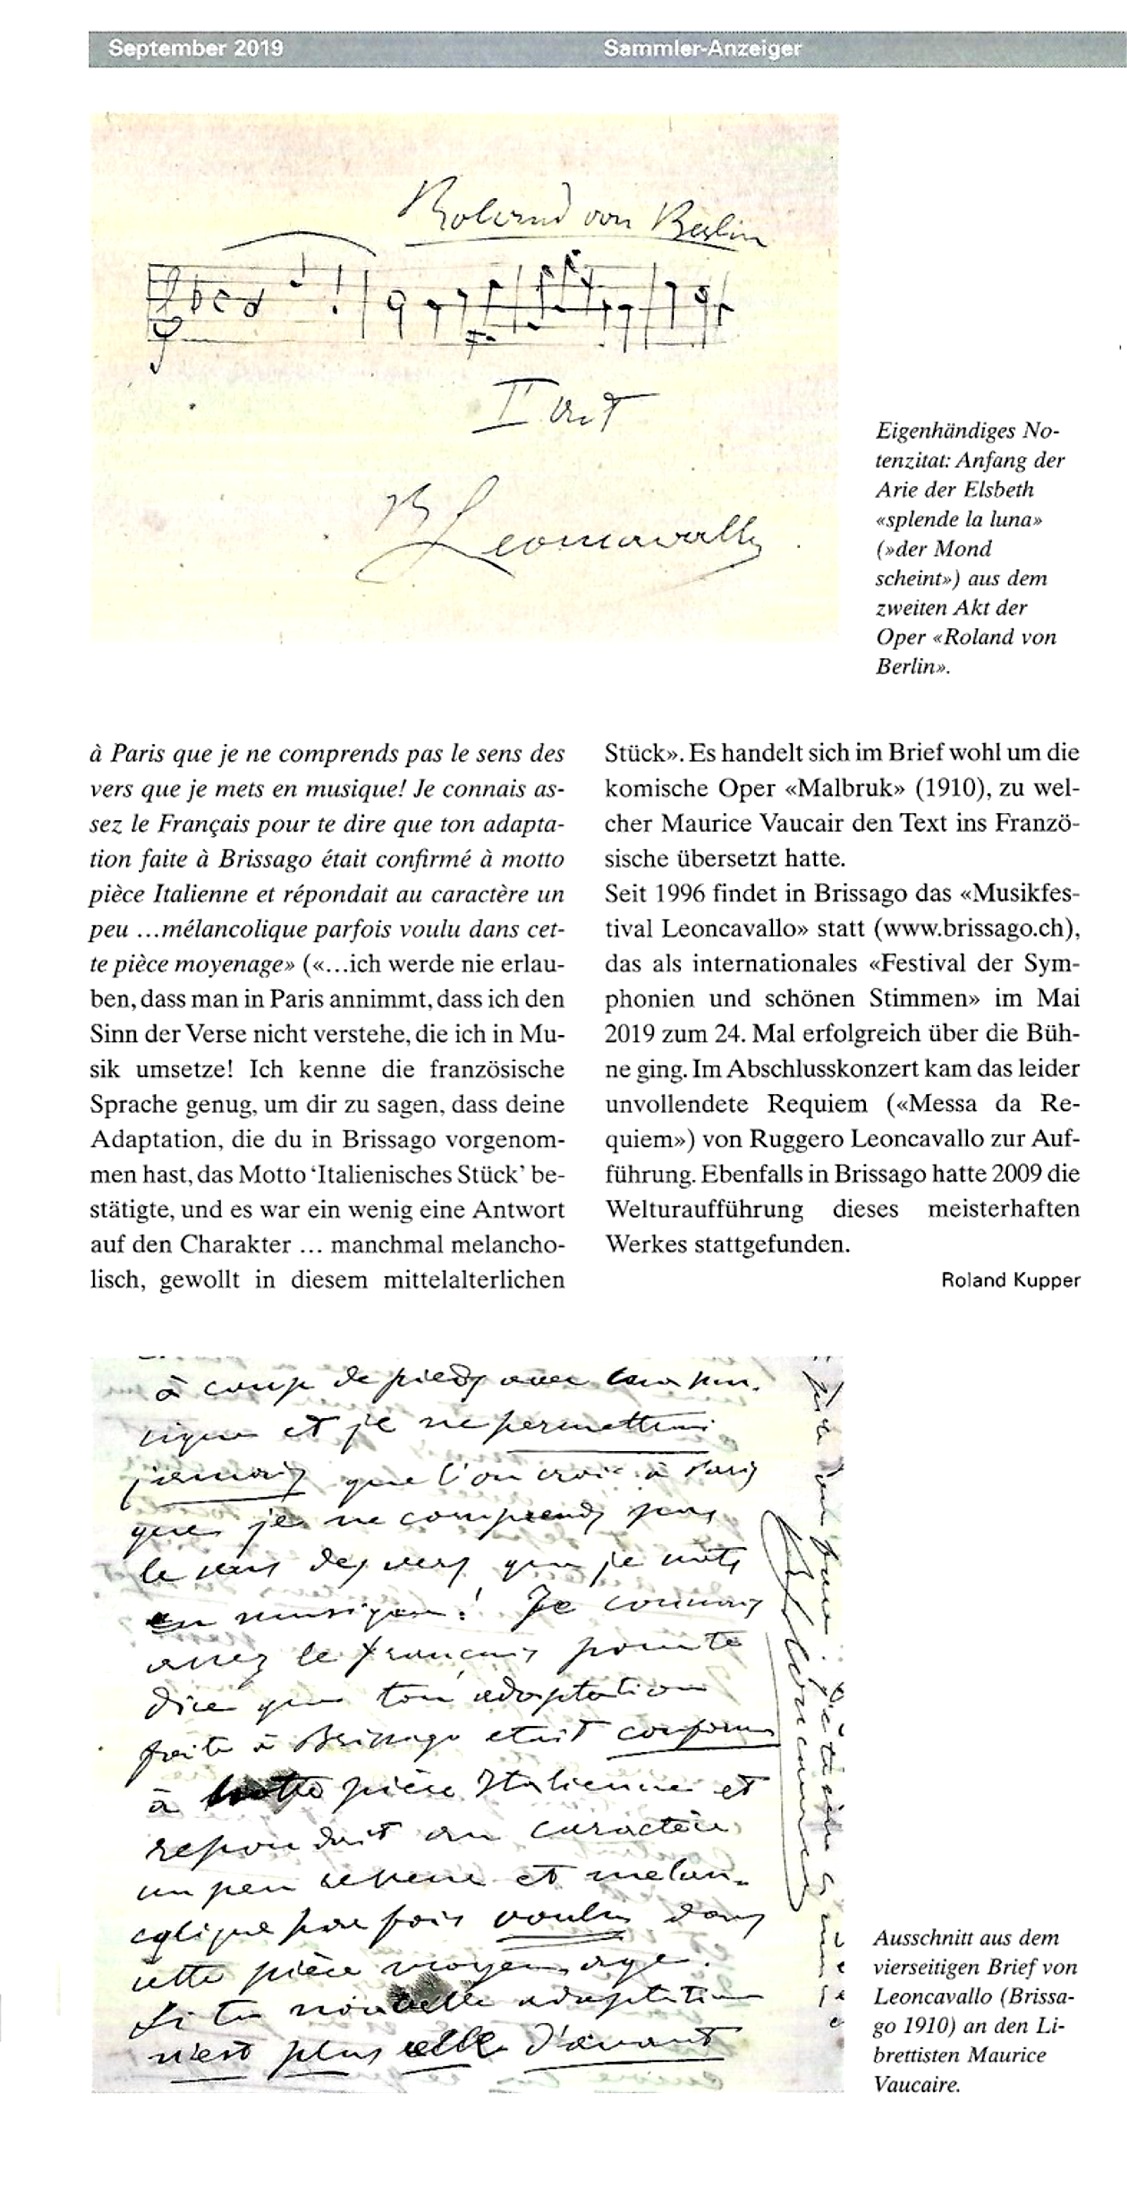 September 2019
Sammler-Anzeiger
Roland von Berlin
II act
R Leoncavallo
Eigenhändiges No-
tenzitat: Anfang der
Arie der Elsbeth
«splende la luna»
(»der Mond
scheint») aus dem
zweiten Akt der
Oper «Roland von
Berlin».
à Paris que je ne comprends pas le sens des
vers que je mets en musique! Je connais as-
sez le Français pour te dire que ton adapta-
tion faite à Brissago était confirmé à motto
pièce Italienne et répondait au caractère un
peu …mélancolique parfois voulu dans cet-
te pièce moyenage» («…ich werde nie erlau-
ben, dass man in Paris annimmt, dass ich den
Sinn der Verse nicht verstehe, die ich in Mu-
sik umsetze! Ich kenne die französische
Sprache genug, um dir zu sagen, dass deine
Adaptation, die du in Brissago vorgenom-
men hast, das Motto ‘Italienisches Stück’ be-
stätigte, und es war ein wenig eine Antwort
auf den Charakter … manchmal melancho-
lisch, gewollt in diesem mittelalterlichen
Stück». Es handelt sich im Brief wohl um die
komische Oper «Malbruk» (1910), zu wel-
cher Maurice Vaucair den Text ins Franzö-
sische übersetzt hatte.
Seit 1996 findet in Brissago das «Musikfes-
tival Leoncavallo» statt (www.brissago.ch),
das als internationales «Festival der Sym-
phonien und schönen Stimmen» im Mai
2019 zum 24. Mal erfolgreich über die Büh-
ne ging. Im Abschlusskonzert kam das leider
unvollendete Requiem («Messa da Re-
quiem») von Ruggero Leoncavallo zur Auf-
führung. Ebenfalls in Brissago hatte 2009 die
Welturaufführung dieses meisterhaften
Werkes stattgefunden.
Roland Kupper
à coup de pieds avec
et je ne permettrai
jamais que l'on croie à Paris
que je ne comprends pas
le sens des vers que je mets
en musique! Je connais
assez le français pour te
dire que ton adaptation
faite à Brissago etait conforme
à notre pièce Italienne et
repondait au caractère
un peu et melan-
colique parfois voulu dans
cette pièce moyen age.
Si ta nouvelle adaptation
n'est plus celle d'avant
Leoncavallo
Ausschnitt aus dem
vierseitigen Brief von
Leoncavallo (Brissa-
go 1910) an den Li-
brettisten Maurice
Vaucaire.